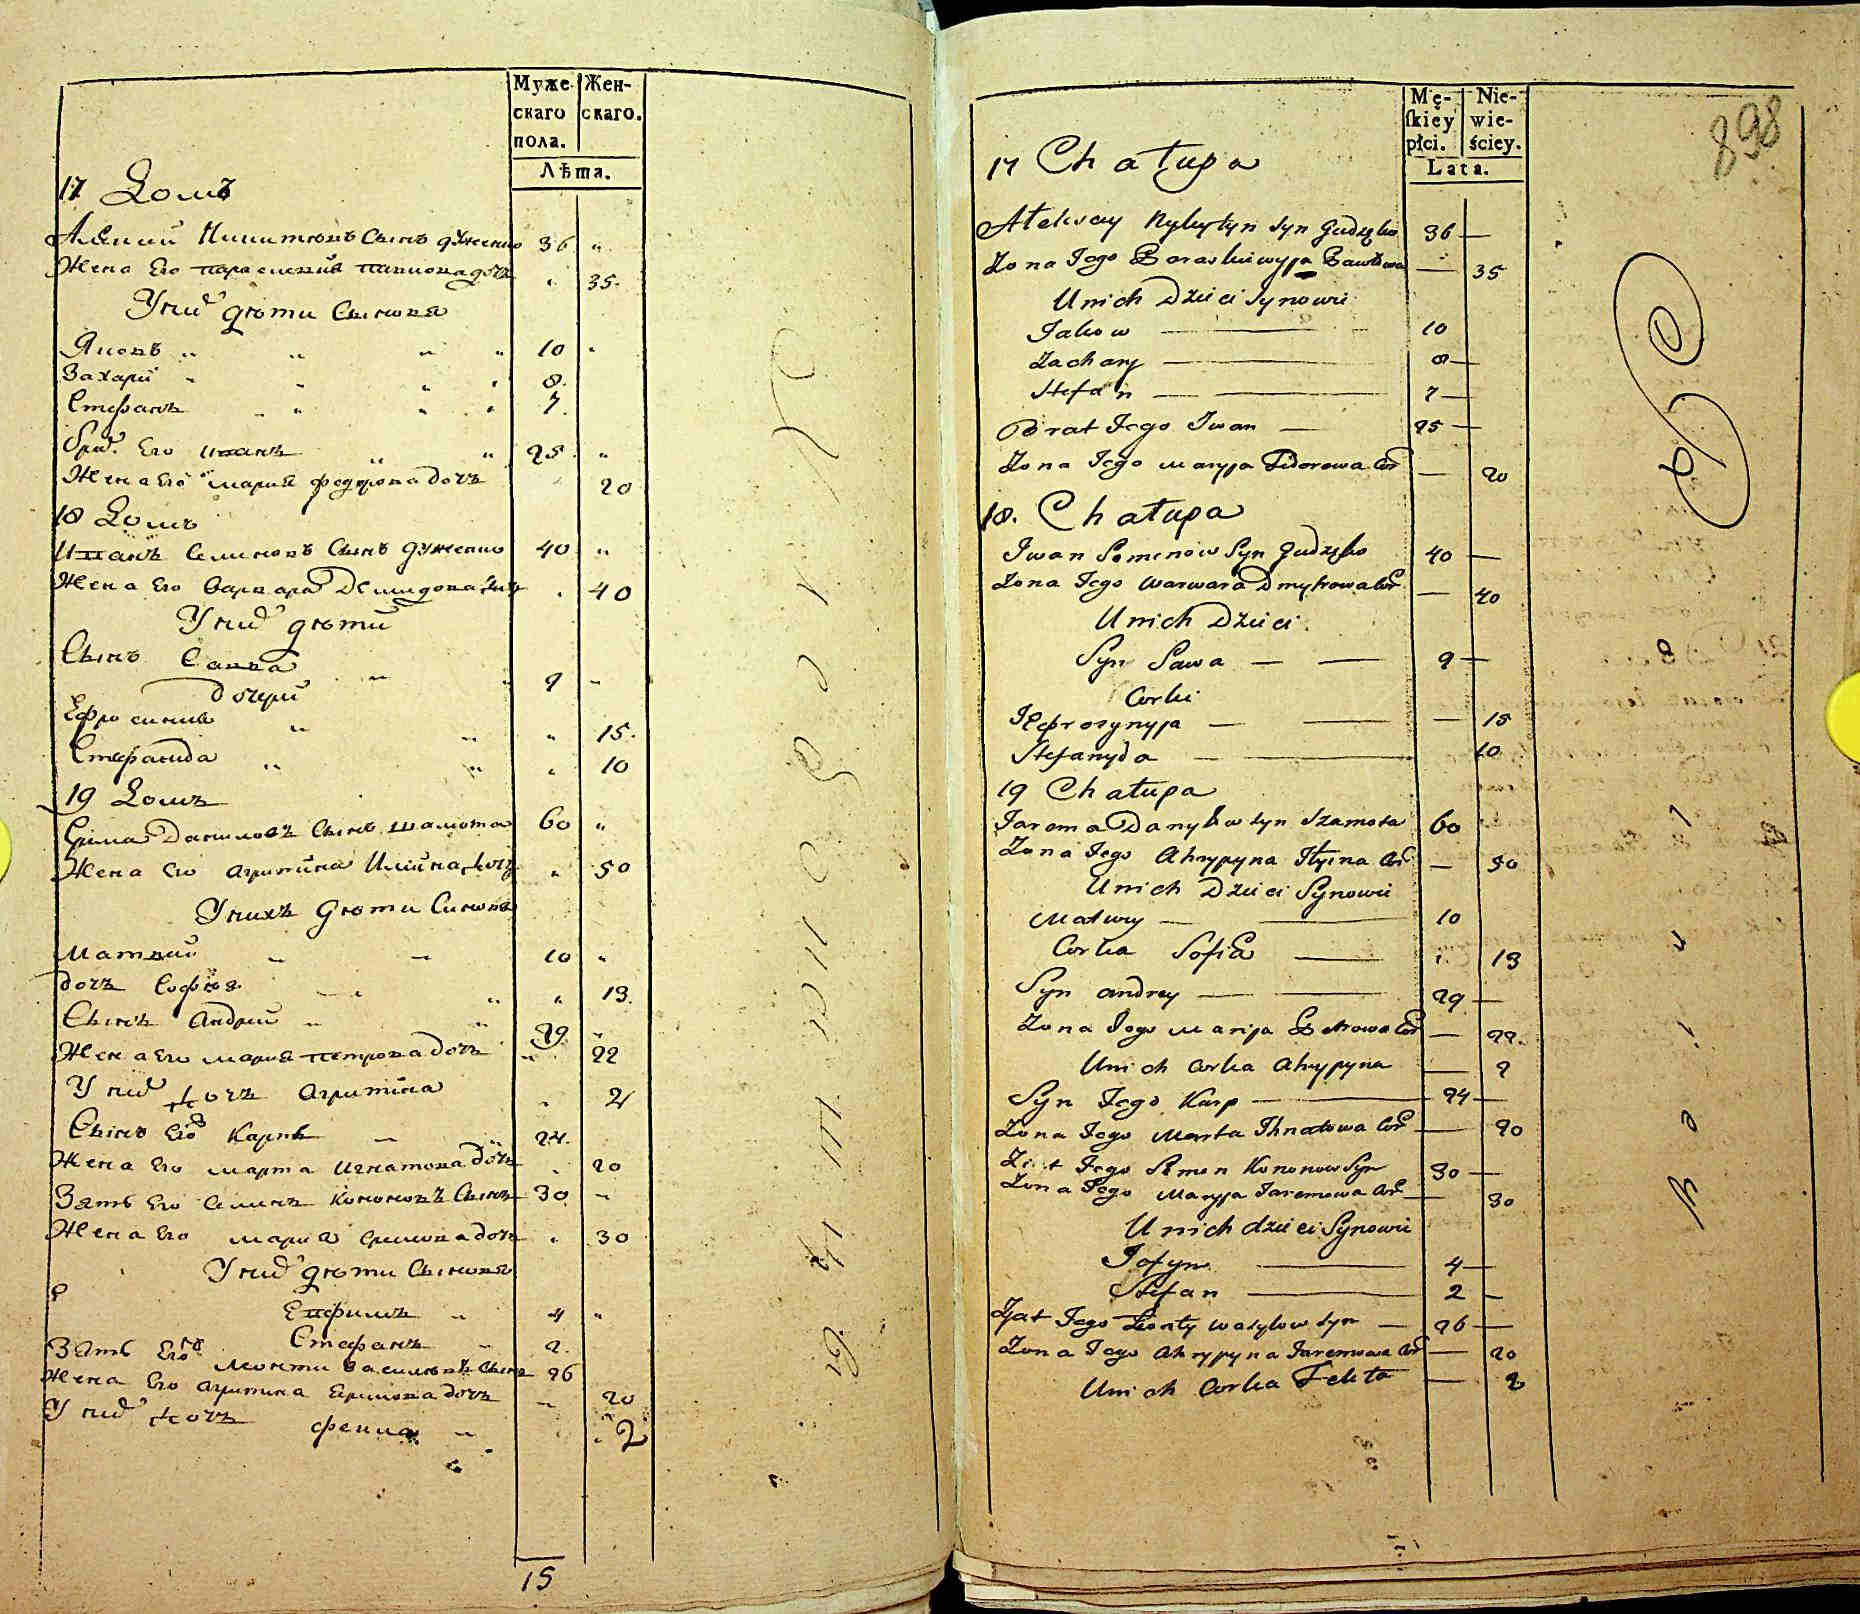 Муже
скаго
пола.
Жен-
скаго.
Лѣта.
17 Домъ
36
Жена Его 35
У них дѣти Сыновя
Яковъ 10
Захарій 8
Стефанъ 7
Брат Его Иванъ 25
Жена Его Мария Федорова дочь 20
18 Домъ
Иванъ Семеновъ Сынъ 40
Жена Его Варвара Демидова дочь 40
У них дѣти
Сынъ Савва 9
дочери
Ефросиния 15
Стефанида 10
19 Домъ
Ерема Даниловъ Сынъ Шамота 60
Жена Его Агрипина Илііна дочь 50
У нихъ дѣти Сыновя
Матвій 10
дочь София 13
Сынъ Андрій 29
Жена Его Мария Петрова дочь 22
У них дочь Агрипина 2
Сынъ Его Карпъ 24
Жена Его Марта Игнатова дочь 20
Зять Его Семенъ Кононовъ Сынъ 30
Жена Его Мария Еремова дочь 30
У них дѣти Сыновя
Евфимъ 4
Стефанъ 2
Зять Его Леонти Василювъ Сынъ 26
Жена Его Агрипина Еремова дочь 20
У них дочь Фекла 2
15
Mę-
ſkiey
płci.
Nie-
wie-
ściey.
Lata.
898
17 Chałupa
Ałeksey Nykytyn syn 36
Zona Jego Paraskiwyja Pawłowa 35
U nich Dzieci Synowie
Jakow 10
Zachary 8
Stefan 7
Brat Jego Iwan 25
Zona Jego Maryja Fidorowa Cor 20
18. Chałupa
Iwan Semenow Syn 40
Zona Jego Warwara Dmytrowa Cor 40
U nich Dzieci
Syn Sawa 9
Corki
Jefrozynyja 15
Stefanyda 10
19 Chałupa
Jarema Danyłow syn Szamota 60
Zona Jego Ahrypyna Iłyina Cor 50
U nich Dzieci Synowie
Matwey 10
Corka Sofia 13
Syn Andrey 29
Zona Jego Marija Petrowa Cor 22
U nich Corka Ahrypyna 2
Syn Jego Karp 24
Zona Jego Marta Ihnatowa Cor 20
Ziat Jego Semen Kononow Syn 30
Zona Jego Maryja Jaremowa Cor 30
U nich dzieci Synowie
Jofym 4
Stefan 2
Zjat Jego Leonty Wasylow syn 26
Zona Jego Ahrypyna Jaremowa Cor 20
U nich Corka Fekła 2